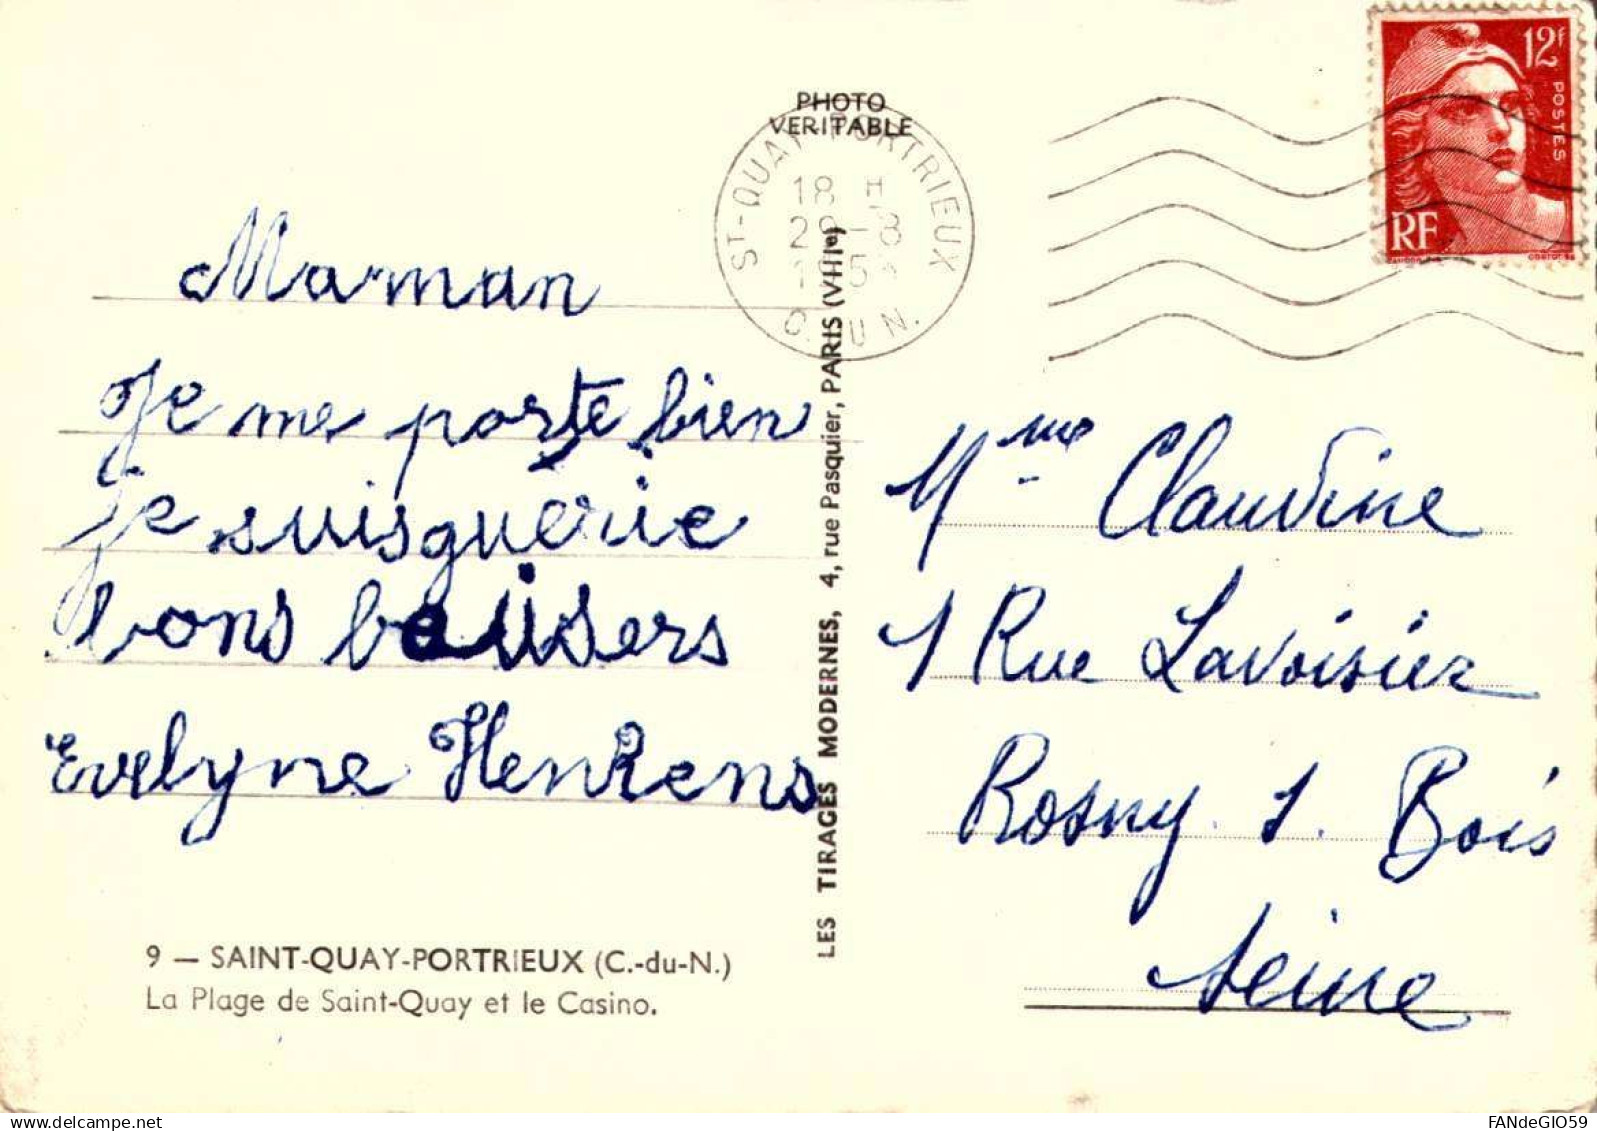 PHOTO
VERITABLE
ST-QUAY-PORTRIEUX
18 H
C. DU N.
12f
POSTES
RF
Maman
Je me porte bien
je suis guérie
bons baisers
Evelyne Henkens
Mme Claudine
1 Rue Lavoisier
Rosny s. Bois
Seine
LES TIRAGES MODERNES, 4, rue Pasquier, PARIS (VIIIe)
9 — SAINT-QUAY-PORTRIEUX (C.-du-N.)
La Plage de Saint-Quay et le Casino.
FANdeGIO59